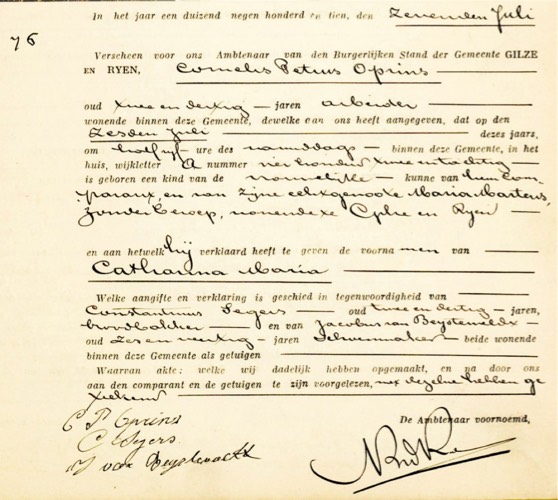 In het jaar een duizend negen honderd en tien, den zevenden Juli
76
Verscheen voor ons Ambtenaar van den Burgerlijken Stand der Gemeente GILZE
EN RYEN, Cornelis Petrus Oprins
oud twee en dertig jaren arbeider
wonende binnen deze Gemeente, dewelke aan ons heeft aangegeven, dat op den
zesden Juli dezes jaars,
om half vijf ure des namiddags binnen deze Gemeente, in het
huis, wijkletter A nummer vier honderd twee en tachtig
is geboren een kind van de vrouwelijke kunne van hem com-
parant, en van zijne echtgenoote Maria Martens,
zonder beroep, wonende te Gilze en Ryen
en aan hetwelk hij verklaard heeft te geven de voorna men van
Catharina Maria
Welke aangifte en verklaring is geschied in tegenwoordigheid van
Constantinus Segers oud twee en dertig jaren,
broodbakker en van Jacobus van Beijsterveldt
oud zes en veertig jaren schoenmaker beide wonende
binnen deze Gemeente als getuigen
Waarvan akte: welke wij dadelijk hebben opgemaakt, en na door ons
aan den comparant en de getuigen te zijn voorgelezen, met dezelve hebben ge
teekend
De Ambtenaar voornoemd,
C P Oprins
C Segers
J van Beijsterveldt